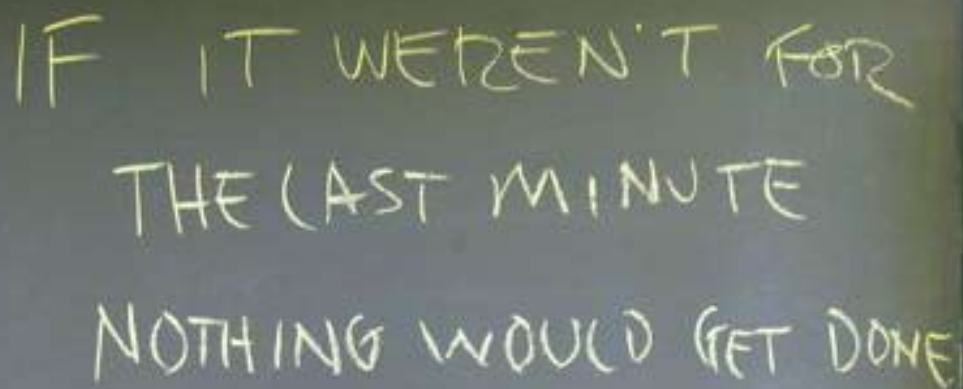 IF IT WEREN'T FOR
THE LAST MINUTE
NOTHING WOULD GET DONE